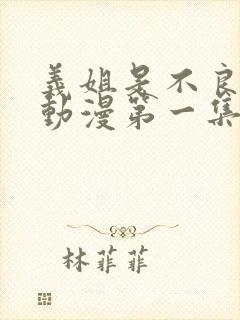 義姐是不良
動漫第一集
林菲菲